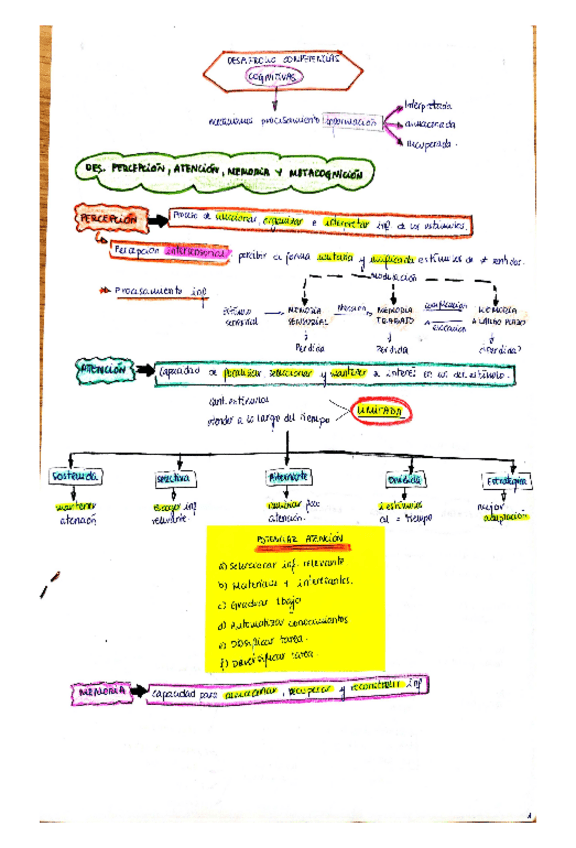 DESARROLLO COMPETENCIAS
COGNITIVAS
procesamiento información
interpretada
almacenada
recuperada.
DES. PERCEPCIÓN, ATENCIÓN, MEMORIA Y METACOGNICIÓN
PERCEPCIÓN
Proceso de seleccionar, organizar e interpretar inf. de los estímulos.
Percepción intersensorial: percibir de forma unitaria y unificada estímulos de ≠ sentidos.
Modulación
* Procesamiento inf
Estímulo sensorial
MEMORIA SENSORIAL
MEMORIA TRABAJO
codificación
MEMORIA A LARGO PLAZO
Perdida
Perdida
¿Perdida?
ATENCIÓN
Capacidad de focalizar, seleccionar y mantener el interés en un det. estímulo.
cant. estímulos
atender a lo largo del tiempo
LIMITADA
Sostenida
Selectiva
Alternante
Dividida
Estratégica
mantener atención
escoger inf relevante.
cambiar foco atención.
2 estímulos al = tiempo
mejor adaptación
POTENCIAR ATENCIÓN
a) Seleccionar inf. relevante
b) Materiales + interesantes.
c) Graduar tbajo
d) Automatizar conocimientos
e) Dosificar tarea.
f) Diversificar tarea.
MEMORIA
Capacidad para almacenar, recuperar y reconstruir inf